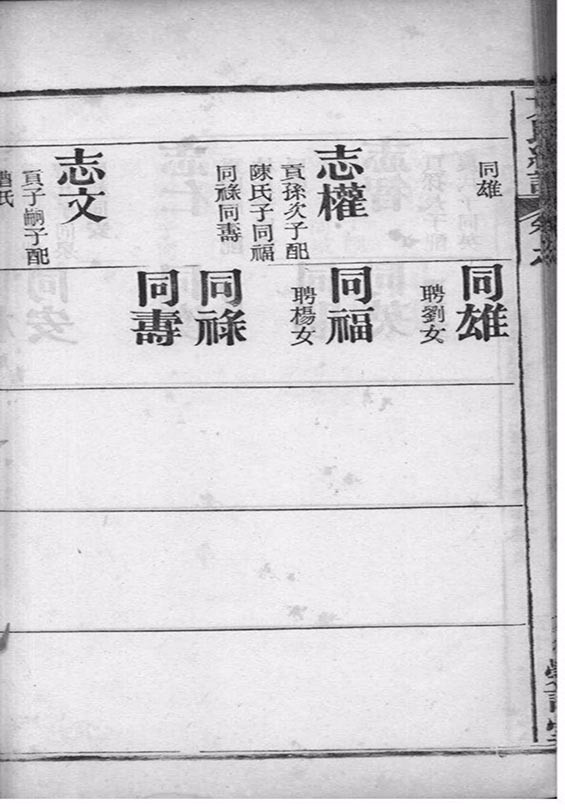 同雄
志權
貢孫次子配
陳氏子同福
同祿同壽
志文
貢子嗣子配
氏
同雄
聘劉女
同福
聘楊女
同祿
同壽